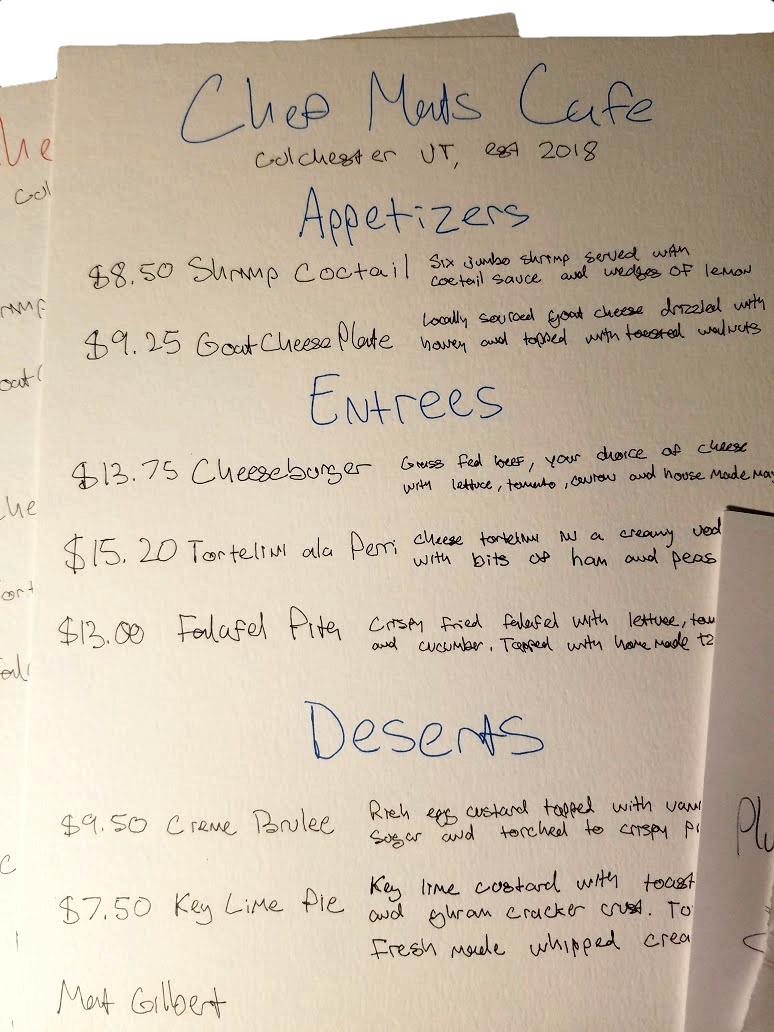 Chef Matts Cafe
Colchester VT, est 2018
Appetizers
$8.50 Shrimp Coctail
Six jumbo shrimp served with
coctail sauce and wedges of lemon
$9.25 Goat Cheese Plate
Locally sourced goat cheese drizzled with
honey and topped with toasted walnuts
Entrees
$13.75 Cheeseburger
Grass fed beef, your choice of cheese
with lettuce, tomato, onion and house made may
$15.20 Tortelini ala Perri
cheese tortelini in a creamy vod
with bits of ham and peas
$13.00 Falafel Pita
Crispy fried falafel with lettuce, tom
and cucumber. Topped with home made tz
Deserts
$9.50 Creme Brulee
Rich egg custard topped with vani
sugar and torched to crispy p
$7.50 Key Lime Pie
Key lime custard with toast
and ghram cracker crust. To
Fresh made whipped crea
Matt Gilbert
he
Col
rimp
oat C
he
ort
fal
C
Plu